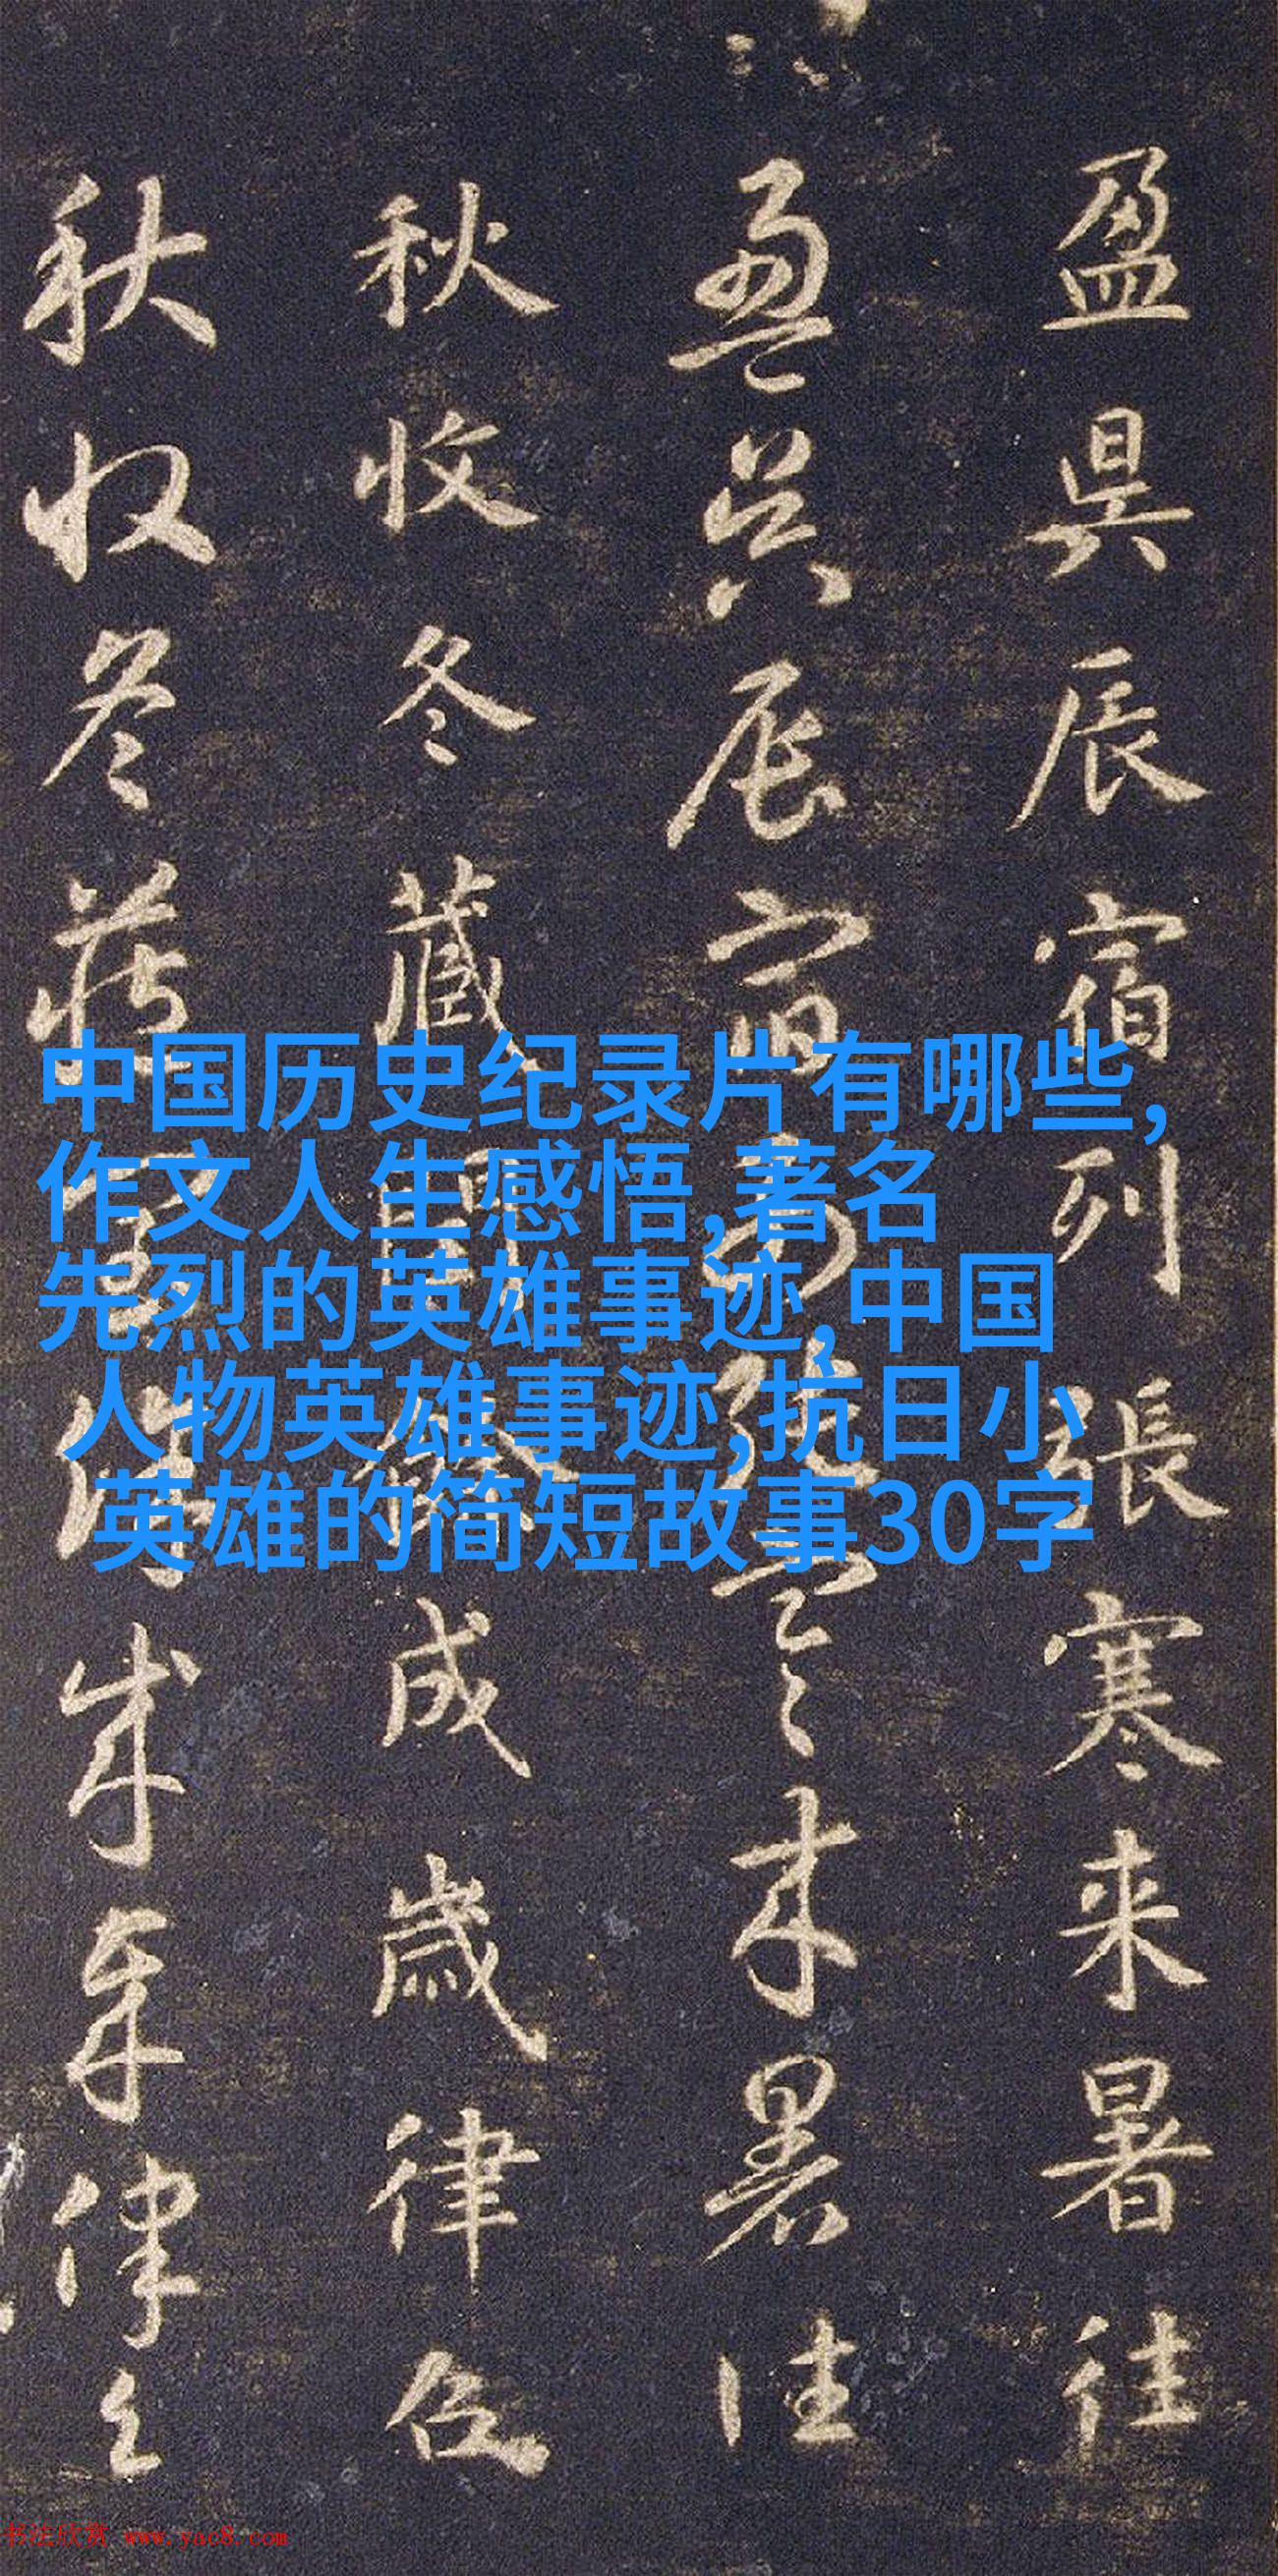 盈昃辰宿列張寒来暑往
盈昃辰宿列張寒来暑往
秋收冬藏閏餘成歲律
秋收冬藏閏餘成歲律
中国历史纪录片有哪些,
作文人生感悟,著名
先烈的英雄事迹,中国
人物英雄事迹,抗日小
英雄的简短故事30字
书法欣赏 www.yac8.com